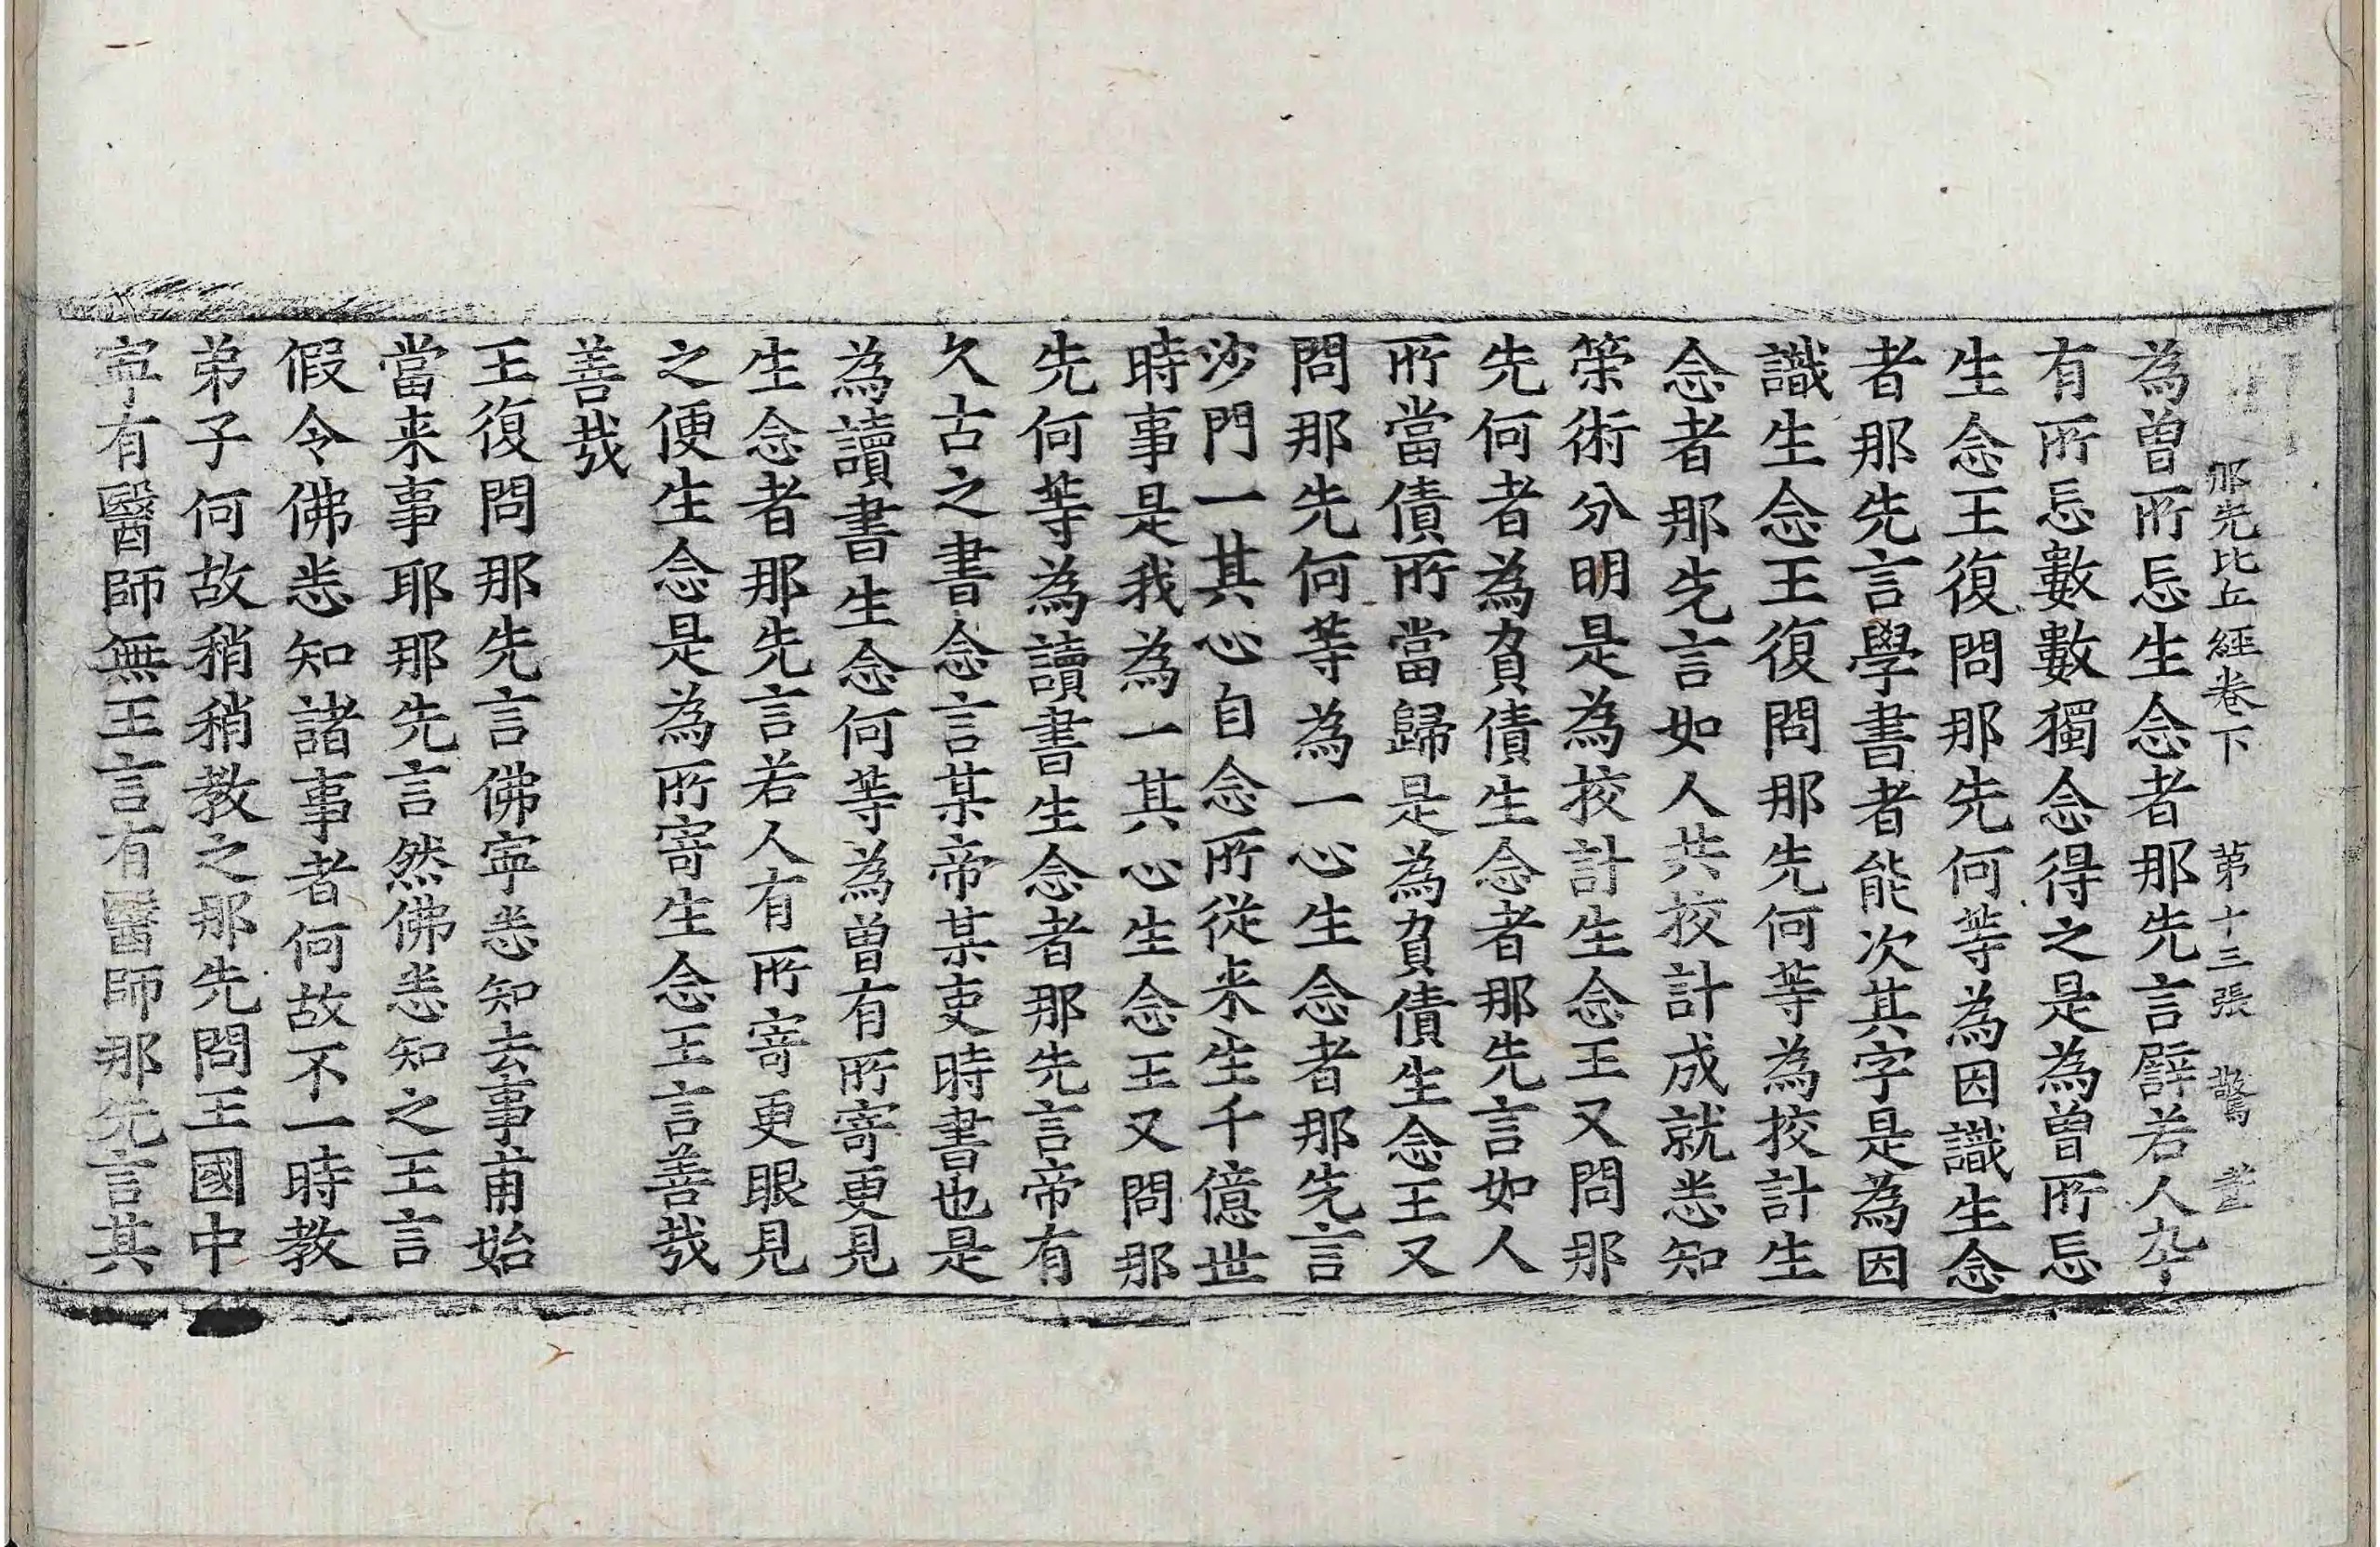 那先比丘經卷下 第十三張 驚
為曽所忘生念者那先言譬若人卒
有所忘數數獨念得之是為曽所忘
生念王復問那先何等為因識生念
者那先言學書者能次其字是為因
識生念王復問那先何等為挍計生
念者那先言如人共挍計成就悉知
筞術分明是為挍計生念王又問那
先何者為負債生念者那先言如人
所當債所當歸是為負債生念王又
問那先何等為一心生念者那先言
沙門一其心自念所從来生千億世
時事是我為一其心生念王又問那
先何等為讀書生念者那先言帝有
久古之書念言某帝某吏時書也是
為讀書生念何等為曽有所寄更見
生念者那先言若人有所寄更眼見
之便生念是為所寄生念王言善㢤
善㢤
王復問那先言佛寧悉知去事甫始
當来事耶那先言然佛悉知之王言
假令佛悉知諸事者何故不一時教
弟子何故稍稍教之那先問王國中
寧有醫師無王言有醫師那先言其